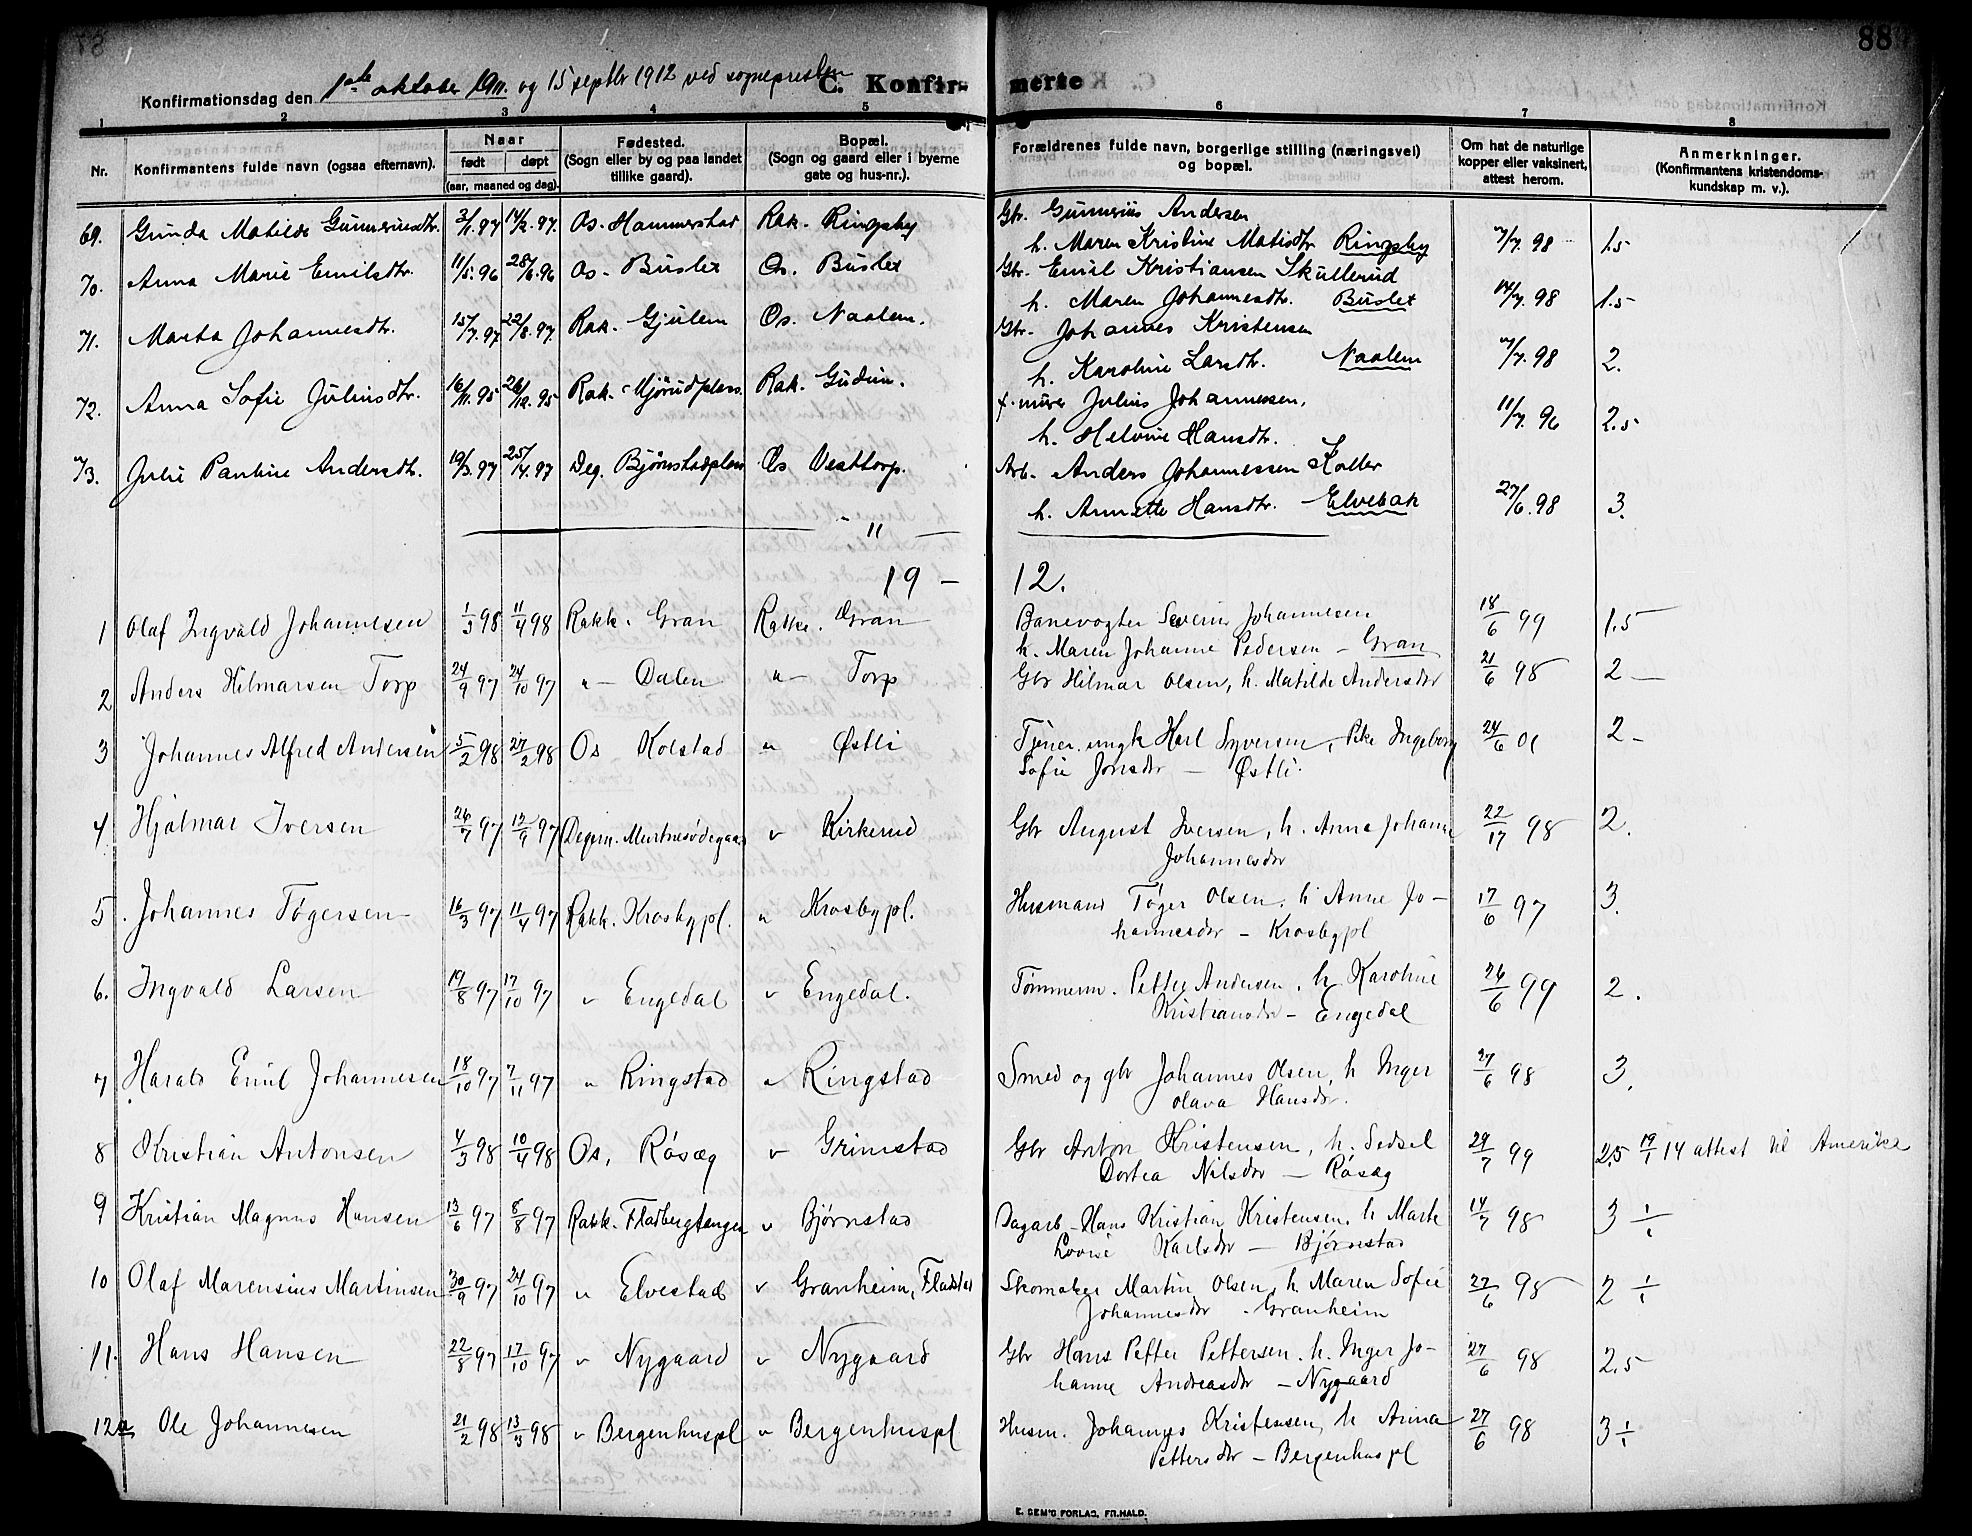 88
Konfirmationsdag den 1ste oktober 1911. og 15 septbr 1912 ved sognepresten
C. Konfir- merte
1 2 3 4 5 6 7 8
Nr. Konfirmantens fulde navn (ogsaa efternavn). Naar født døpt (aar, maaned og dag). Fødested. (Sogn eller by og paa landet tillike gaard). Bopæl. (Sogn og gaard eller i byerne gate og hus-nr.). Forældrenes fulde navn, borgerlige stilling (næringsvei) og bopæl. Om hat de naturlige kopper eller vaksinert, attest herom. Anmerkninger. (Konfirmantens kristendoms-kundskap m. v.).
69. Gunda Matilde Gunneriusdtr. 3/1. 97 14/2. 97. Os. Hammerstad Rak. Ringsby Gbr. Gunnerius Andersen
h. Maren Kristine Matisdtr Ringsby 7/7. 98 1.5
70. Anna Marie Emilsdtr. 11/5. 96 28/6. 96 Os. Buslet Os. Buslet Gbr. Emil Kristiansen Skullerud
h. Maren Johannesdtr. Buslet 14/7. 98 1.5
71. Marta Johannesdtr. 15/7. 97 22/8. 97. Rak. Gjulem Os. Naalem. Gbr. Johannes Kristensen
h. Karoline Larsdtr. Naalem 7/7. 98 2.
72. Anna Sofie Juliusdtr. 16/11. 95 26/12. 95 Rak. Mjørudplass Rak. Gudim. f. murer Julius Johannessen,
h. Helvine Hansdtr. 11/7. 96 2.5
73. Julie Pauline Andersdtr. 19/3. 97 25/4. 97 Deg. Bjørnstadplass Os Vesttorp. Arb. Anders Johannessen Koller
h. Annette Hansdtr. Elvebak 27/6. 98 3.
"
19 - 12.
1 Olaf Ingvald Johannesen 1/3 98 11/4 98 Rakk. Gran Rakke. Gran Banevogter Severin Johannesen
h. Maren Johanne Pedersen - Gran 18/6 99 1.5
2 Anders Hilmarsen Torp 24/9 97 24/10 97 " - Dalen " - Torp Gbr Hilmar Olsen, h. Matilde Andersdtr 21/6 98 2 -
3 Johannes Alfred Andersen 5/2 98 27/2 98 Os Kolstad " Østli Tjener. ungk Karl Syversen, Pike Ingeborg
Sofie Jonsdtr - Østli. 24/6 01 2 -
4 Hjalmar Iversen 26/7 97 12/9 97 Degern. Murtnesødegaard " Kirkerud Gbr August Iversen, h. Anna Johanne
Johannesdtr 22/17 98 2.
5. Johannes Tøgersen 16/3 97 11/4 97 Rakk. Krosbypl. " Krosbypl. Husmand Tøger Olsen, h Anne Jo-
hannesdtr - Krosbypl 17/6 97 3.
6. Ingvald Larsen 19/8 97 17/10 97 " Engedal " Engedal. Tømmerm. Petter Andersen, h Karoline
Kristiansdtr - Engedal 26/6 99 2.
7 Harald Emil Johannesen 18/10 97 7/11 97 " Ringstad " Ringstad Smed og gbr Johannes Olsen, h Inger
Olava Hansdtr. 27/6 98 3.
8 Kristian Antonsen 4/3 98 10/4 98 Os, Røsæg " Grimstad Gbr Anton Kristensen, h. Sedsel
Dortea Nilsdtr - Røsæg 29/7 99 2.5 19/1 14 attest til Amerika
9 Kristian Magnus Hansen 13/6 97 8/8 97 Rakk. Fladbergtangen " Bjørnstad Dagarb - Hans Kristian Kristensen, h Marte
Lovise Karlsdtr - Bjørnstad 14/7 98 3 1/1
10 Olaf Marensius Martinsen 30/9 97 24/10 97 " Elvestad " Granheim, Fladstad Skomaker Martin Olsen, h. Maren Sofie
Johannesdtr - Granheim 22/6 98 2 1/1
11. Hans Hansen 22/8 97 17/10 97 " Nygaard " Nygaard Gbr Hans Petter Pettersen. h. Inger Jo-
hanne Andreasdtr - Nygaard 27/6 98 2.5
12 a Ole Johannesen 21/2 98 13/3 98 " Bergenhuspl " Bergenhuspl Husm. Johannes Kristensen, h Anna
Pettersdtr - Bergenhuspl 27/6 98 3 1/1
E. SEM'S FORLAG, FR.HALD.